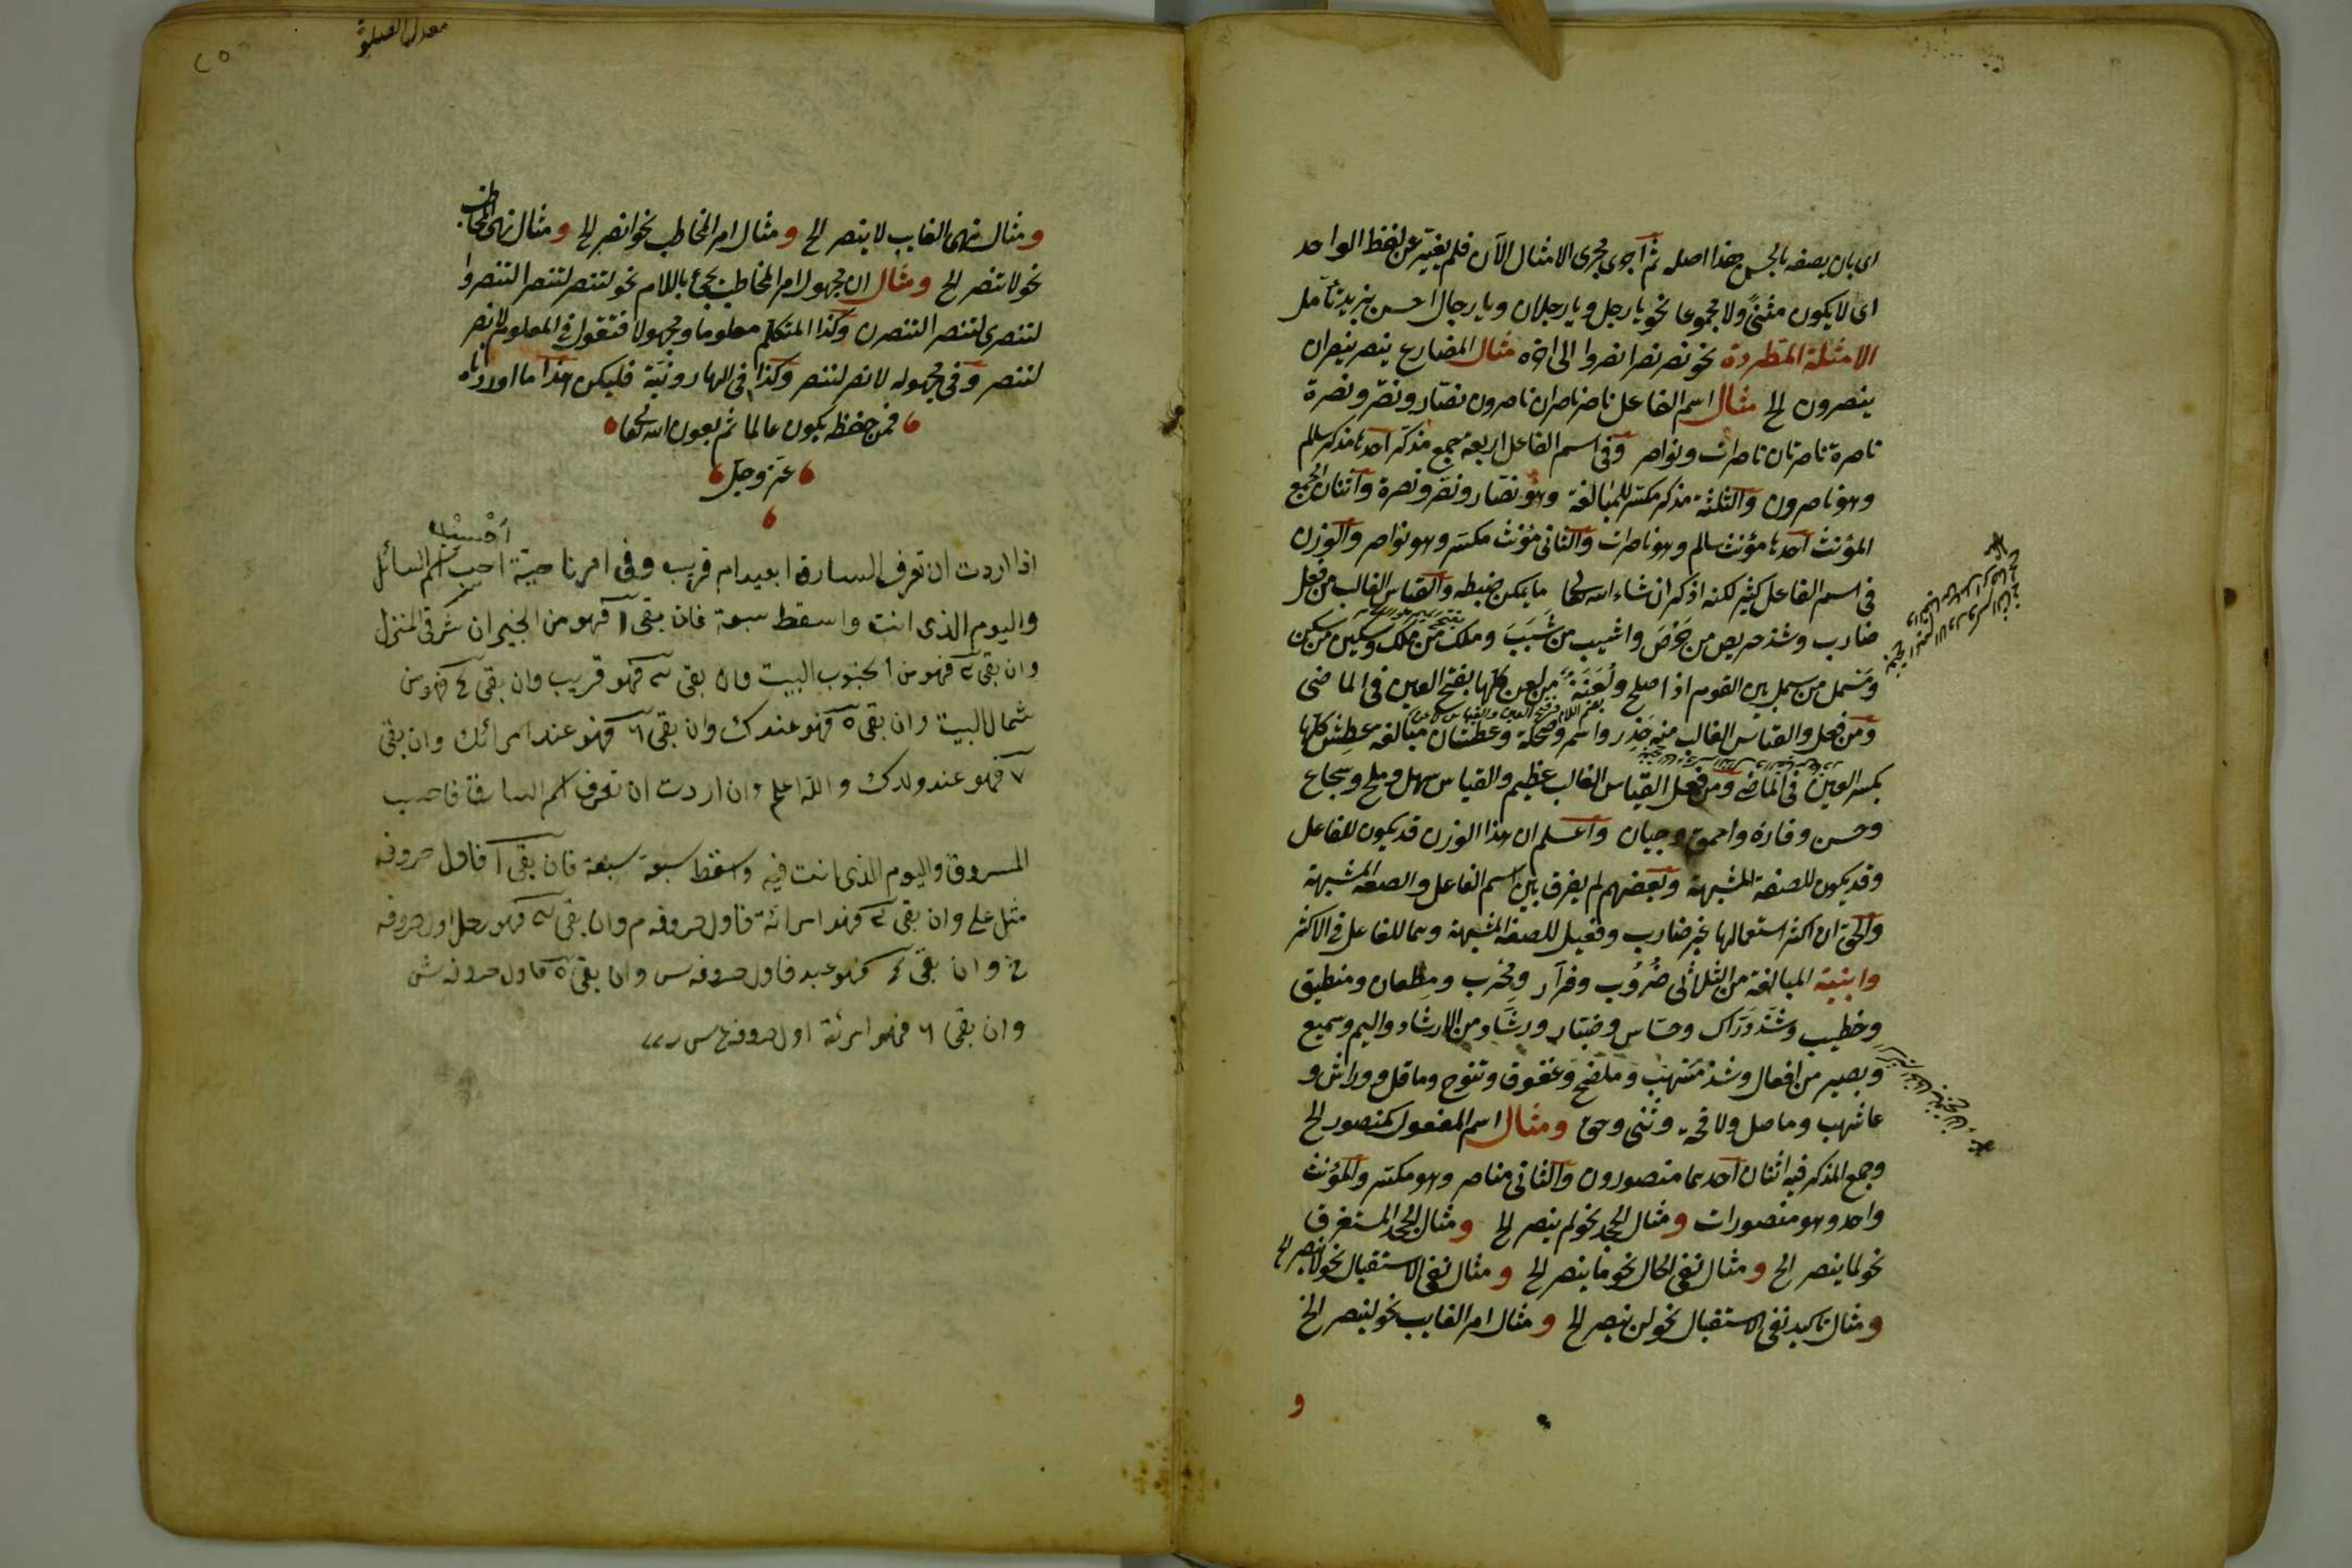 اى بان يصفه بالحسن هذا اصله ثم اجرى مجرى الامثال الآن فلم يغيّر عن لفظ الواحد
اى لا يكون مثنىً ولا مجموعا نحو يا رجل ويا رجلان ويا رجال احسن بزيد تأمل
الامثلة المطردة نحو نصر نصرا نصروا الى اخره مثال المضارع ينصر ينصران
ينصرون الخ مثال اسم الفاعل ناصر ناصران ناصرون نصّار ونصّر ونصرة
ناصرة ناصرتان ناصرات ونواصر وفى اسم الفاعل اربعة جمع مذكر احدها مذكر سالم
وهو ناصرون والثلثة مذكر مكسر للمبالغة وهو نصّار ونصّر ونصرة واثنان لجمع
المؤنث احدها مؤنث سالم وهو ناصرات والثانى مؤنث مكسر وهو نواصر والوزن
فى اسم الفاعل كثير لكنه اذكر ان شاء الله تعالى ما يمكن ضبطه والقياس الغالب من فعل
ضارب وشذ حريص من حَرَصَ واشيب من شَيَبَ وملك من ملك وسكين من سكن
وسمل من سمل بين القوم اذا اصلح ولُعَنَة من لعن كلها بفتح العين فى الماضى
ومن فعل والقياس الغالب منه حَذِر واسم وضحكة وعطشان مبالغه عطِش كلها
بكسر العين فى الماضى ومن فعل القياس الغالب عظيم والقياس سهل وملح وشجاع
وحسن وفارة واحمق وجبان واعلم ان هذا الوزن قد يكون للفاعل
وقد يكون للصفة المشبهة وبعضهم لم يفرق بين اسم الفاعل والصفة المشبهة
والحق ان اكثر استعمالها غير ضارب وفعيل للصفة المشبهة وهما للفاعل فى الاكثر
وابنية المبالغة من الثلاثى ضُرُوب وفرّار ومِحْرب ومِطعان ومنطيق
وخطيب وشذ درّاك وحسّاس وجبّار ورشّاد من الارشاد واليم وسميع
وبصير من افعال وشذ مسهب وملفح وعقوق ونتوج وماقل ووارش و
عاشب وماصل ولاقحه ومثال اسم المفعول كمنصور الخ
وجمع المذكر فيه اثنان احدهما منصورون والثانى مناصر وهو مكسر والمؤنث
واحد وهو منصورات ومثال الجحد نحو لم ينصر الخ ومثال الجحد المستغرق
نحو لما ينصر الخ ومثال نفى الحال نحو ما ينصر الخ ومثال نفى الاستقبال نحو لا ينصر الخ
ومثال تاكيد نفى الاستقبال نحو لن ينصر الخ ومثال امر الغايب نحو لينصر الخ
و
٢٥
ومثال نهى الغايب لا ينصر الخ ومثال امر المخاطب نحو انصر الخ ومثال نهى المخاطب
نحو لا تنصر الخ ومثال ان مجهول امر المخاطب يجئ باللام نحو لتنصر لتنصرا لتنصروا
لتنصرى لتنصرا لتنصرن وكذا المتكلم معلوما ومجهولا فتقول فى المعلوم لانصر
لننصر وفى مجهوله لانصر لننصر وكذا فى الهارونية فليكن هذا ما اوردناه
فمن حفظ يكون عالما ثم بعون الله تعالى
عز وجل
اذا اردت ان تعرف السارق ابعيد ام قريب وفى اى ناحية احسب اسم السائل
واليوم الذى انت واسقط سبعة فان بقى ١ فهو من الجيران شرقى المنزل
وان بقى ٢ فهو من الجنوب البيت وان بقى ٣ فهو قريب وان بقى ٤ فهو من
شمال البيت وان بقى ٥ فهو عندك وان بقى ٦ فهو عند امرائك وان بقى
٧ فهو عند ولدك والله اعلم وان اردت ان تعرف اسم السارق فاحسب
المسروق واليوم الذى انت فيه واسقط سبعة سبعة فان بقى ١ فاول حروفه
مثل على وان بقى ٢ فهو امرائة فاول حروفه م وان بقى ٣ فهو رجل اول حروفه
خ وان بقى ٤ فهو عبد فاول حروفه س وان بقى ٥ فاول حروفه ش
وان بقى ٦ فهو امرئة اول حروفه ع س